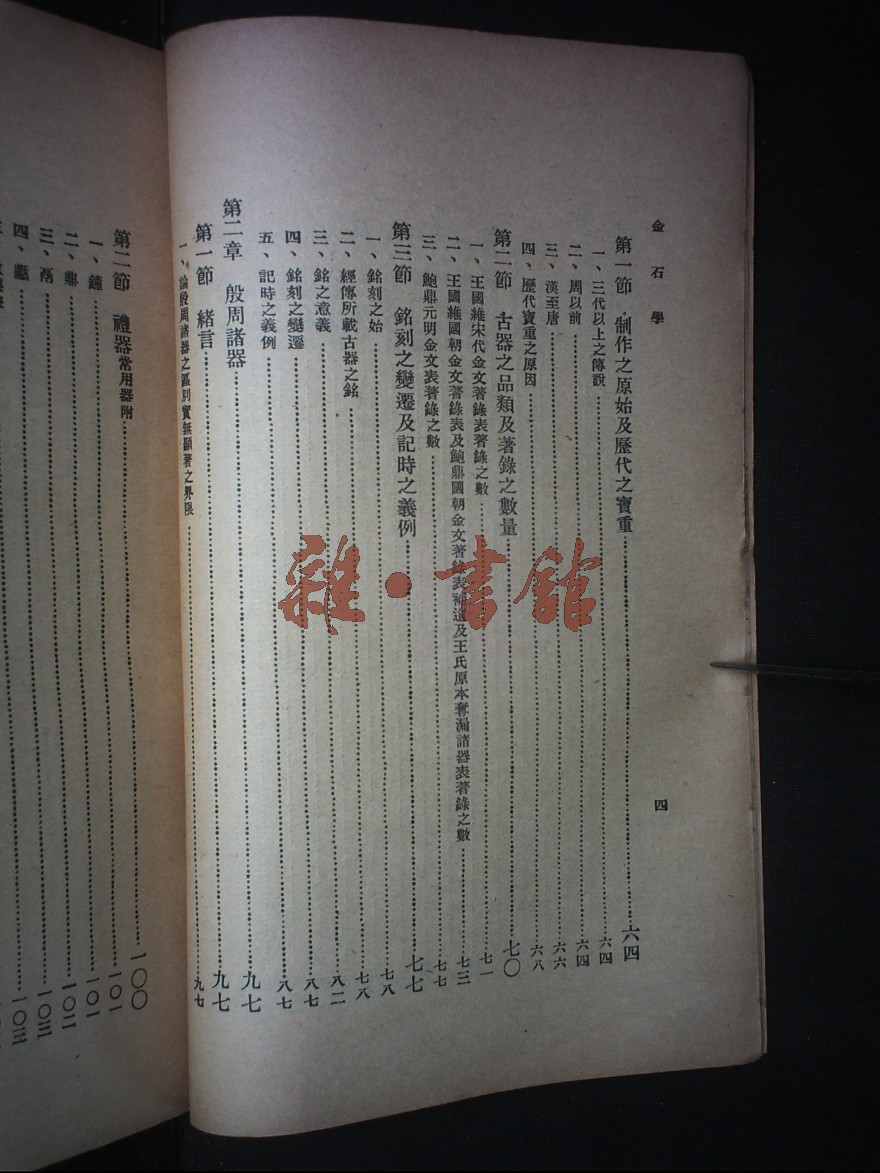 金石學
四
第一節 制作之原始及歷代之寶重……六四
一、三代以上之傳說……六四
二、周以前……六四
三、漢至唐……六六
四、歷代寶重之原因……六八
第二節 古器之品類及著錄之數量……七〇
一、王國維宋代金文著錄表著錄之數……七一
二、王國維國朝金文著錄表及鮑鼎國朝金文著錄表補遺及王氏原本奪漏諸器表著錄之數……七三
三、鮑鼎元明金文表著錄之數……七七
第三節 銘刻之變遷及記時之義例……七七
一、銘刻之始……七八
二、經傳所載古器之銘……八二
三、銘之意義……八七
四、銘刻之變遷……八七
五、記時之義例……八七
第二章 殷周諸器……九七
第一節 緒言……九七
一、論殷周諸器之區別實無顯著之界限……九七
第二節 禮器常用器附……一〇〇
一、鐘……一〇一
二、鼎……一〇一
三、鬲……一〇二
四、甗……一〇三
雜·書館